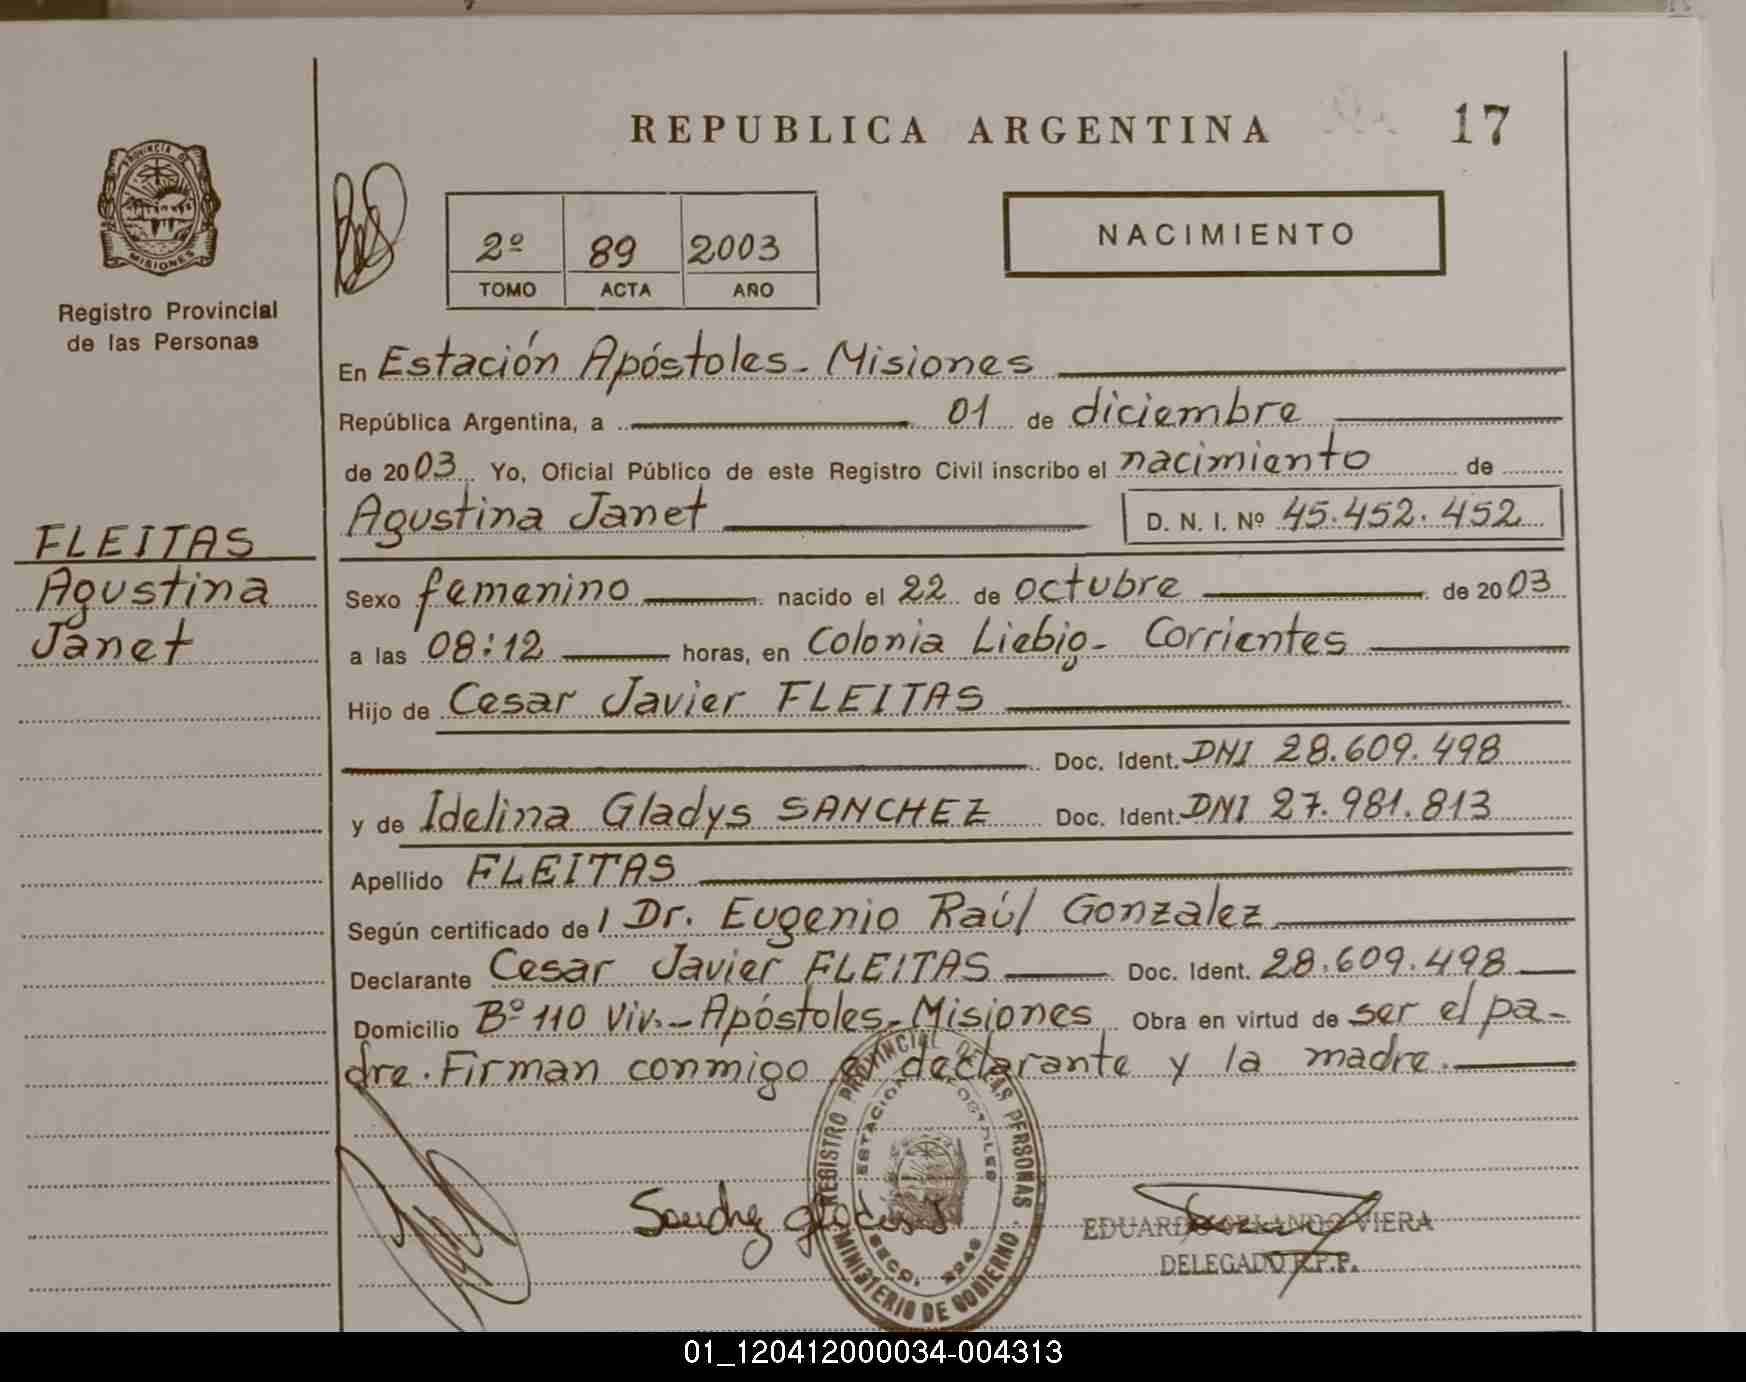 REPUBLICA ARGENTINA 17
PROVINCIA DE
MISIONES
Registro Provincial
de las Personas
2º 89 2003
TOMO ACTA AÑO
NACIMIENTO
En Estación Apóstoles - Misiones
República Argentina, a 01 de diciembre
de 2003 Yo, Oficial Público de este Registro Civil inscribo el nacimiento de
Agustina Janet D. N. I. Nº 45.452.452
FLEITAS
Agustina
Janet
Sexo femenino nacido el 22 de octubre de 2003
a las 08:12 horas, en Colonia Liebig - Corrientes
Hijo de Cesar Javier FLEITAS
Doc. Ident. DNI 28.609.498
y de Idelina Gladys SANCHEZ Doc. Ident. DNI 27.981.813
Apellido FLEITAS
Según certificado de l Dr. Eugenio Raúl Gonzalez
Declarante Cesar Javier FLEITAS Doc. Ident. 28.609.498
Domicilio Bº 110 Viv. - Apóstoles - Misiones Obra en virtud de ser el pa-
dre. Firman conmigo el declarante y la madre.
REGISTRO PROVINCIAL DE LAS PERSONAS
MINISTERIO DE GOBIERNO
EDUARDO ORLANDO VIERA
DELEGADO R.P.P.
01_120412000034-004313